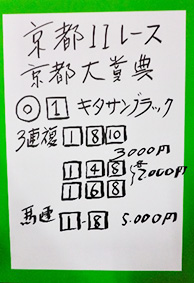 京都11レース
京都大賞典
◎ 1 キタサンブラック
3連複 1 8 10
3000円
1 4 8
1 6 8 各2000円
馬連 1-8 5.000円